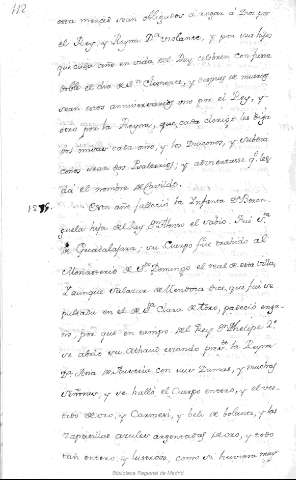 112
esta merced sean obligados a rogar á Dios por
el Rey, y Reyna Dª Violante, y por sus hijos
que cada año en vida del Rey celebren con fiesta
doble el dia de Sn Clemente, y despues de muertos
sean estos anniversarios uno por el Rey, y
otro por la Reyna, que cada clerigo les diga
dos misas cada año, y los Diaconos, y Subdia
conos sean dos Psalterios; y
da el nombre de Cavildo.
Este año falleció la Infanta Dª Beren
guela hija del Rey Dn Alonso el sabio. Fué Sª
de Guadalajara; su Cuerpo fue trahido al
Monasterio de Sto Domingo el real de esta villa,
Y aunque Salazar de Mendoza dice, que fue se
pultada en el de Sta Clara de Toro, padeció enga
ño, por que en tiempo del Rey Dn Phelipe 2º
se abrió su Athaud estando presente la Reyna
Dª Ana de Austria con sus Damas, y muchas
Señoras, y se halló el Cuerpo entero, y el ves
tido de oro, y Carmesi, y velo de bolante, y las
zapatillas azules argentadas de oro, y todo
tan entero, y lustroso, como si huviera muy
Biblioteca Regional de Madrid